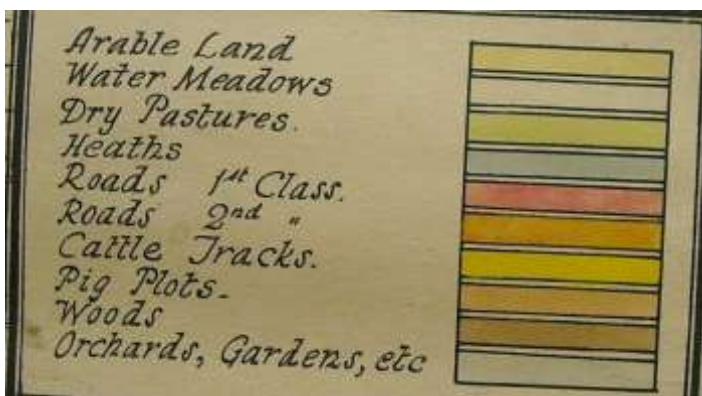 Arable Land
Water Meadows
Dry Pastures.
Heaths
Roads 1st Class.
Roads 2nd "
Cattle Tracks.
Pig Plots.
Woods
Orchards, Gardens, etc